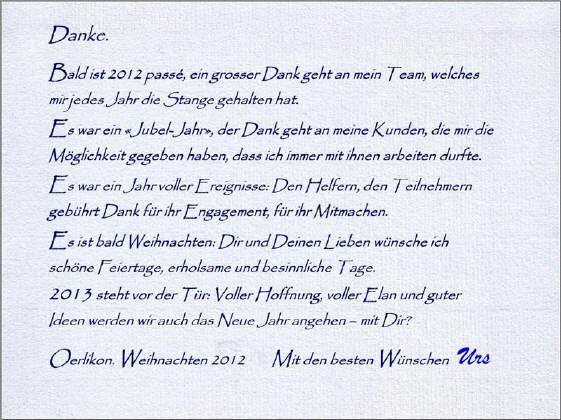 Danke.
Bald ist 2012 passé, ein grosser Dank geht an mein Team, welches
mir jedes Jahr die Stange gehalten hat.
Es war ein «Jubel-Jahr», der Dank geht an meine Kunden, die mir die
Möglichkeit gegeben haben, dass ich immer mit ihnen arbeiten durfte.
Es war ein Jahr voller Ereignisse: Den Helfern, den Teilnehmern
gebührt Dank für ihr Engagement, für ihr Mitmachen.
Es ist bald Weihnachten: Dir und Deinen Lieben wünsche ich
schöne Feiertage, erholsame und besinnliche Tage.
2013 steht vor der Tür: Voller Hoffnung, voller Elan und guter
Ideen werden wir auch das Neue Jahr angehen – mit Dir?
Oerlikon, Weihnachten 2012 Mit den besten Wünschen Urs